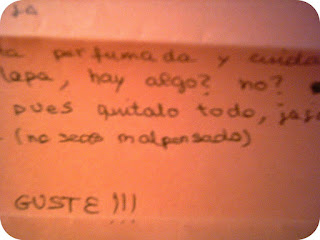 ta perfumada y cuida
lapa, hay algo? no?
pues quítalo todo, jaja
(no seas malpensado)
GUSTE!!!